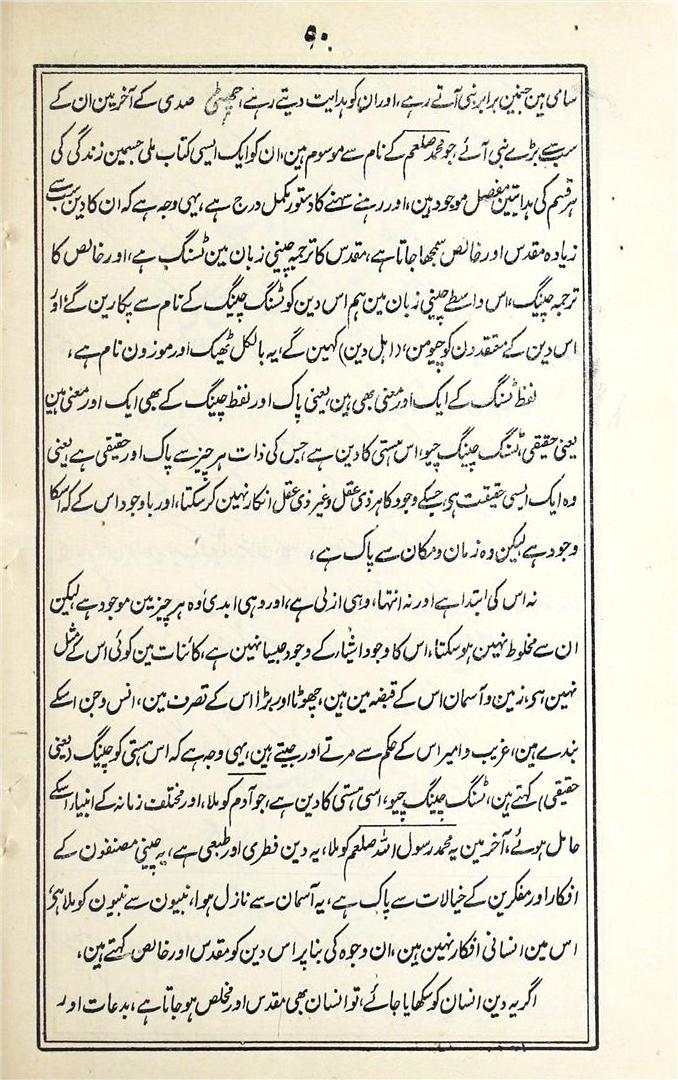 ۵۰
سامی ہین جنمین برابر نبی آتے رہے، اور ان کو ہدایت دیتے رہے، چھٹی صدی کے آخر مین ان کے
سب سے بڑے نبی آئے، جو محمد صلعم کے نام سے موسوم ہین، ان کو ایک ایسی کتاب ملی جسمین زندگی کی
ہر قسم کی ہدایتین مفصل موجود ہین، اور رہنے سہنے کا دستور مکمل درج ہے، یہی وجہ ہے کہ ان کا دین سب سے
زیادہ مقدس اور خالص سمجھا جاتا ہے، مقدس کا ترجمہ چینی زبان مین ٹسنگ ہے، اور خالص کا
ترجمہ چینگ، اس واسطے چینی زبان مین ہم اس دین کو ٹسنگ چینگ کے نام سے پکارین گے، اور
اس دین کے معتقدون کو چیومن، (اہل دین) کہین گے، یہ بالکل ٹھیک اور موزون نام ہے،
لفظ ٹسنگ کے ایک اور معنی بھی ہین، یعنی پاک اور لفظ چینگ کے بھی ایک اور معنی ہین
یعنی حقیقی، ٹسنگ چینگ چیو، اس ہستی کا دین ہے جس کی ذات ہر چیز سے پاک اور حقیقی ہے، یعنی
وہ ایک ایسی حقیقت ہی، جسکے وجود کا ہر ذی عقل و غیر ذی عقل انکار نہین کر سکتا، اور باوجود اس کے کہ اسکا
وجود ہے لیکن وہ زمان و مکان سے پاک ہے،
نہ اس کی ابتدا ہے اور نہ انتہا، وہی ازلی ہے، اور وہی ابدی، وہ ہر چیز مین موجود ہے لیکن
ان سے مخلوط نہین ہو سکتا، اس کا وجود اشیار کے وجود جیسا نہین ہے، کائنات مین کوئی اس کے مثل
نہین ہی، زمین و آسمان اس کے قبضہ مین ہین، چھوٹا اور بڑا اس کے تصرف مین، انس و جن اسکے
بندے ہین، غریب و امیر اس کے حکم سے مرتے اور جیتے ہین، یہی وجہ ہے کہ اس ہستی کو چینگ (یعنی
حقیقی) کہتے ہین، ٹسنگ چینگ چیو، اسی ہستی کا دین ہے، جو آدم کو ملا، اور مختلف زمانہ کے انبیار اسکے
حامل ہوئے، آخر مین یہ محمد رسول اللہ صلعم کو ملا، یہ دین فطری اور طبعی ہے، یہ چینی مصنفون کے
افکار اور مفکرین کے خیالات سے پاک ہے، یہ آسمان سے نازل ہوا، نبیون سے نبیون کو ملا ہی،
اس مین انسانی افکار نہین ہین، ان وجوہ کی بنا پر اس دین کو مقدس اور خالص کہتے ہین،
اگر یہ دین انسان کو سکھایا جائے، تو انسان بھی مقدس اور مخلص ہو جاتا ہے، بدعات اور